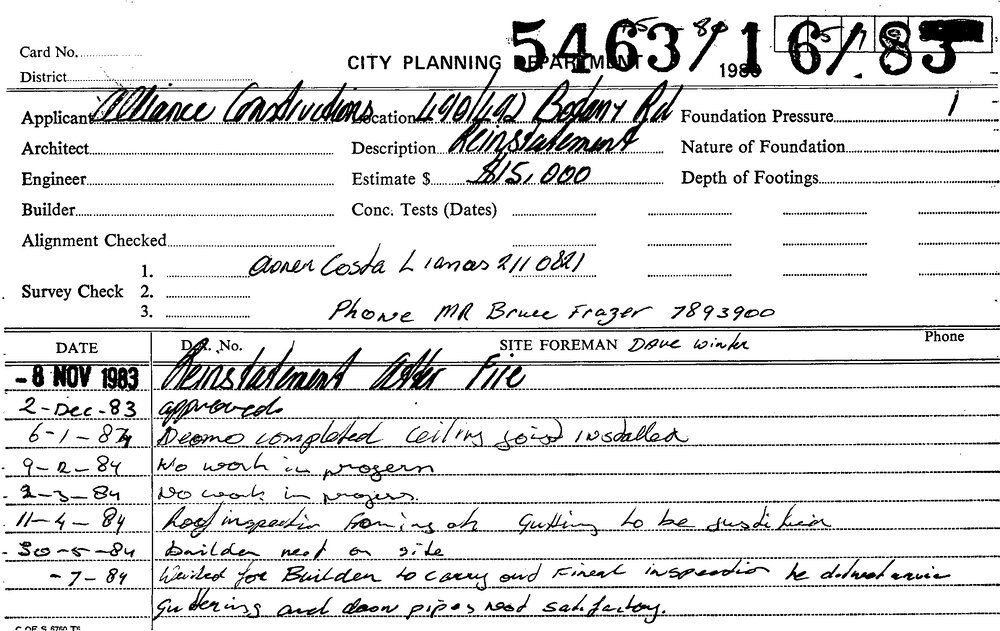 Card No.
District
CITY PLANNING DEPARTMENT
198
5463/16/83
Applicant Alliance Constructions Location 490/492 Botany Rd Foundation Pressure 1
Architect Description Reinstatement Nature of Foundation
Engineer Estimate $ $15,000 Depth of Footings
Builder Conc. Tests (Dates)
Alignment Checked
1. owner Costa Lianos 2110821
Survey Check 2.
3. Phone MR Bruce Frazer 7893900
DATE No. SITE FOREMAN Dave Winter Phone
- 8 NOV 1983 Reinstatement After Fire
2-Dec-83 approved.
6-1-84 Deomo completed ceiling joist installed
9-2-84 No work in progress
2-3-84 No work in progress.
11-4-84 Roof inspection Framing ok Gutting to be
30-5-84 Builder not on site
-7-84 Waited for Builder to carry out Final inspection he
guttering and down pipes not satisfactory.
C OF S 5760 T5